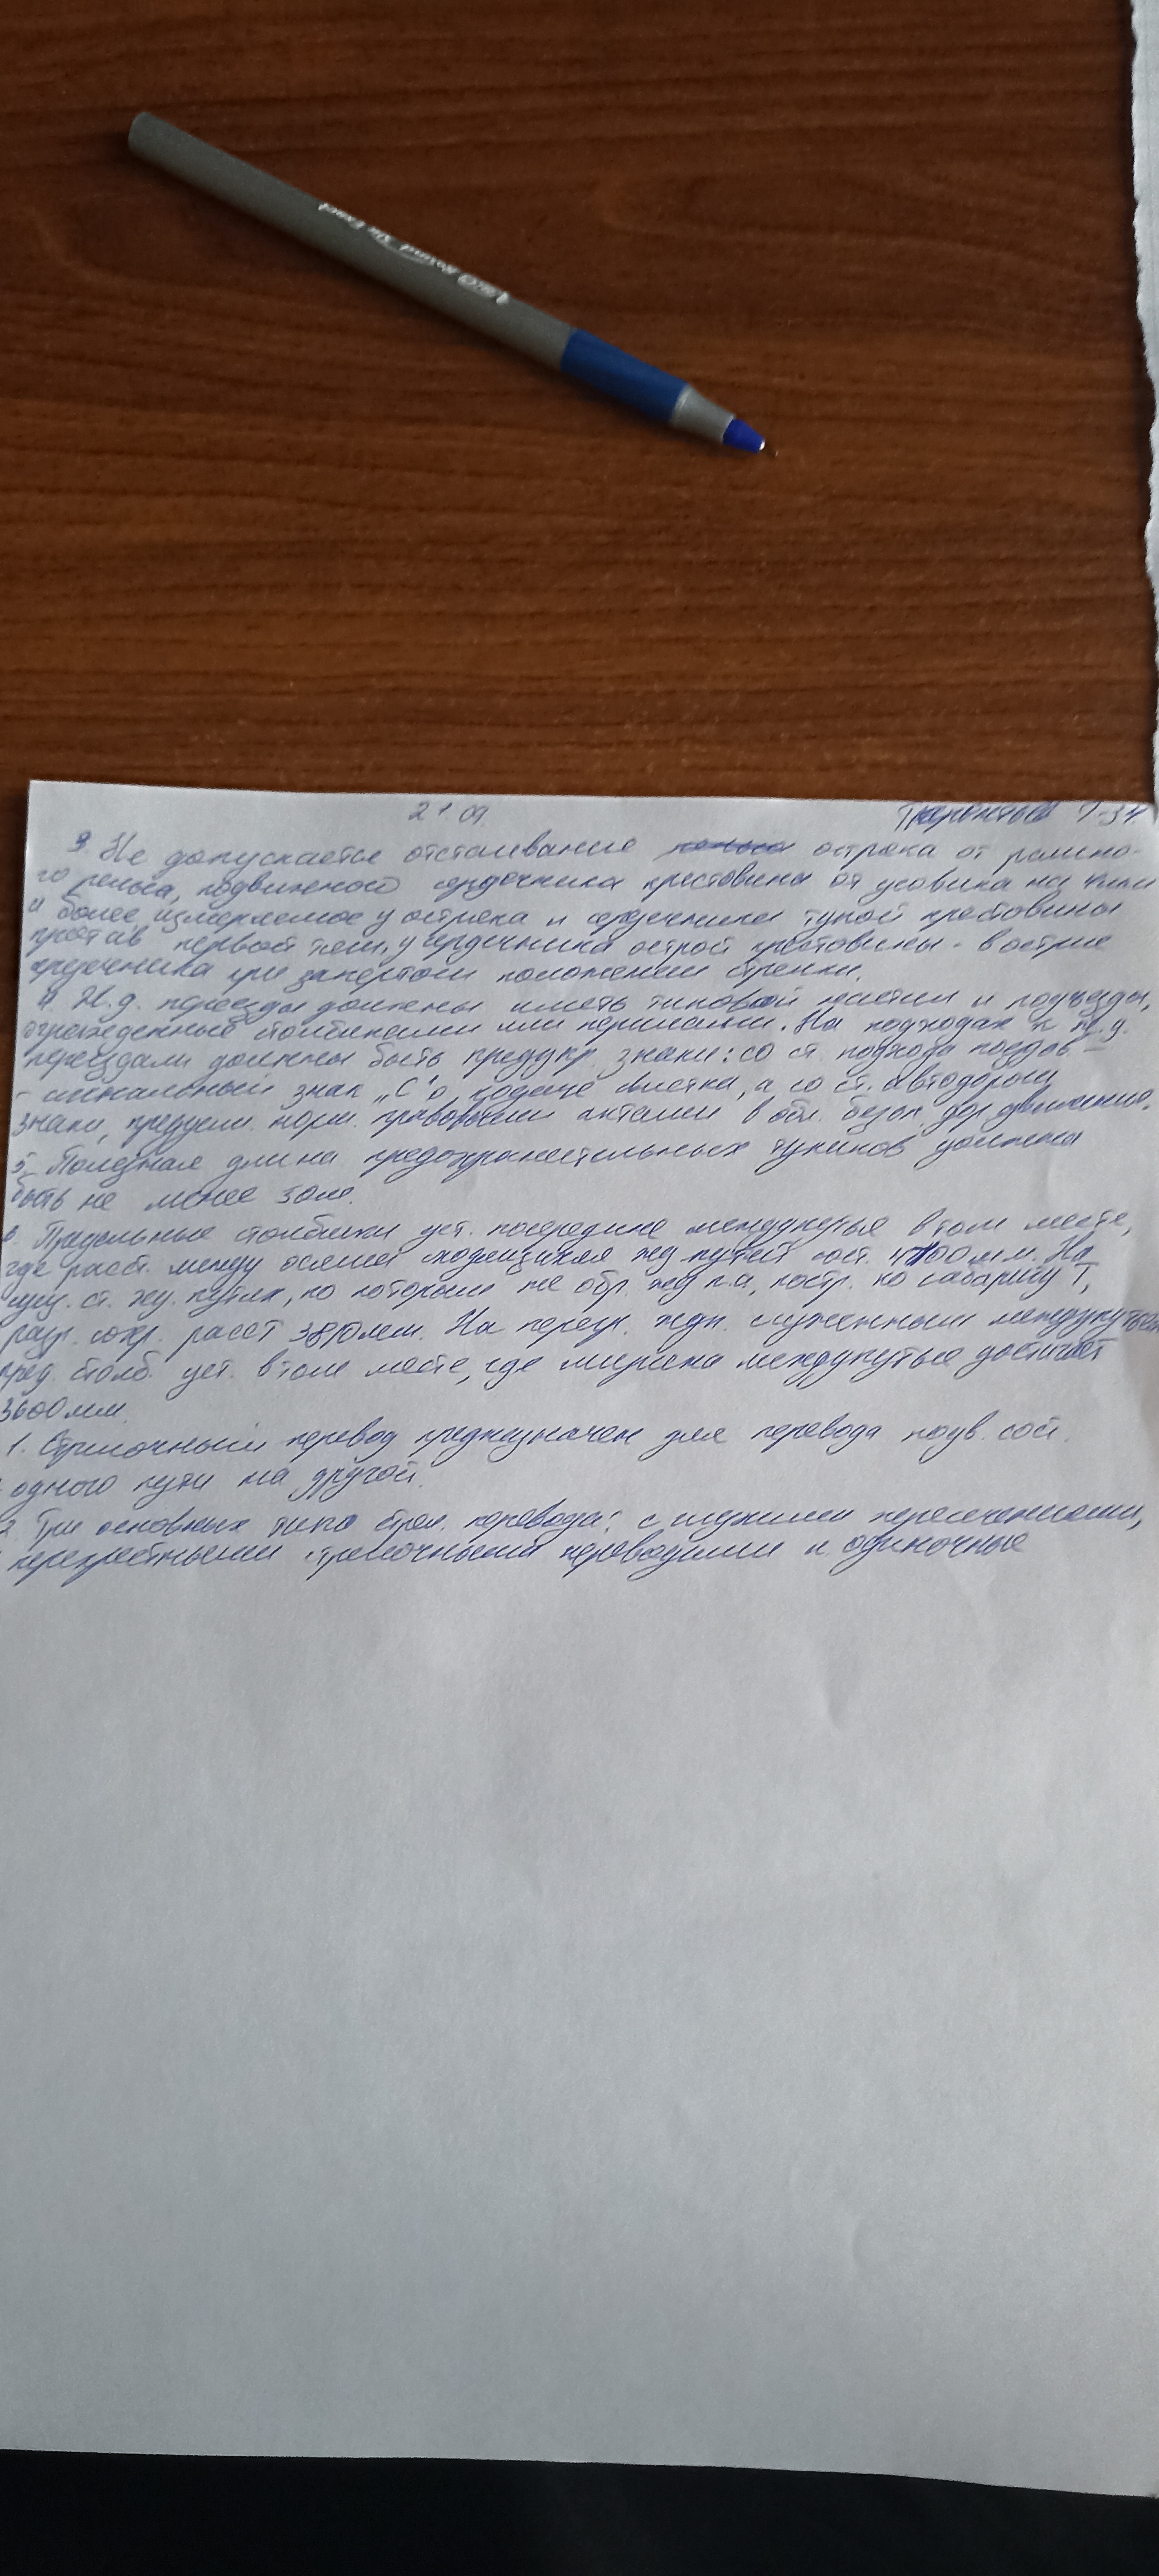 BIC Round Stic Exact
21.09.
3. Не допускается отстаивание остряка от рамно-
го рельса, подвижного сердечника крестовина от усовика на 4мм
и более, измеряемое у остряка и сердечника тупой крестовины
против первой тяги, у сердечника острой крестовины - в острие
сердечника при запертом положении стрелки.
4 Ж.д. переезды должны иметь типовой настил и подъезды,
огражденные столбиками или перилами. На подходах к ж.д.
переездам должны быть предупр знаки: со ст. подхода поездов -
- сигнальный знак "С" о подаче свистка, а со ст. автодороги
знаки, предусм. норм. правовыми актами в обл. безоп. дор движения.
5. Полезная длина предохранительных тупиков должна
быть не менее 50м.
6. Предельные столбики уст. посередине междупутья в том месте,
где расст. между осями сходящихся жд путей сост. 4100мм. На
сущ. ст. жд. путях, по которым не обр. жд п.с, постр. по габариту Т,
разр. сохр. расст 3810мм. На перегр. ждп. суженным междупутьем
пред. столб. уст. в том месте, где ширина междупутья достигает
3600мм.
1. Стрелочный перевод предназначен для перевода подв. сост.
одного пути на другой.
2. Три основных типа стрел. перевода: с глухими пересечениями,
перекрестными стрелочными переводами и одиночные